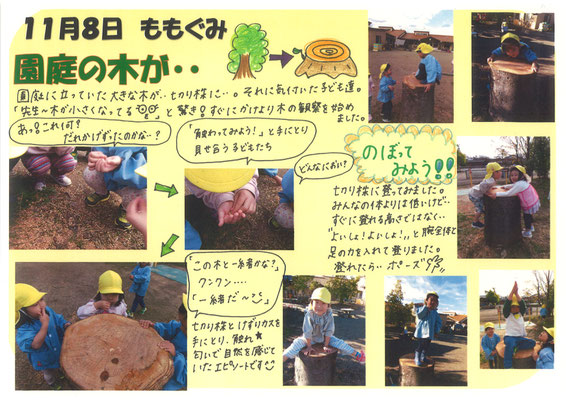 11月8日 ももぐみ
園庭の木が・・
園庭に立っていた大きな木が、切り株に…。それに気付いた子ども達。
「先生～木が小さくなってる」と驚き!すぐにかけより木の観察を始め
ました。
あっ!これ何?
だれかけずったのかな…?
「触わってみよう!」と手にとり
見せ合う子どもたち
どんなにおい?
「この木と一緒かな?」
クンクン….
「一緒だ～
切り株とけずりカスを
手にとり、触れ
匂いで自然を感じて
いたエピソードです
のぼって
みよう!!
切り株に登ってみました。
みんなの体よりは低いけど…
すぐに登れる高さではなく、
"よいしょ!よいしょ!"と腕全体と
足の力を入れて登りました。
登れたら…ポーズ